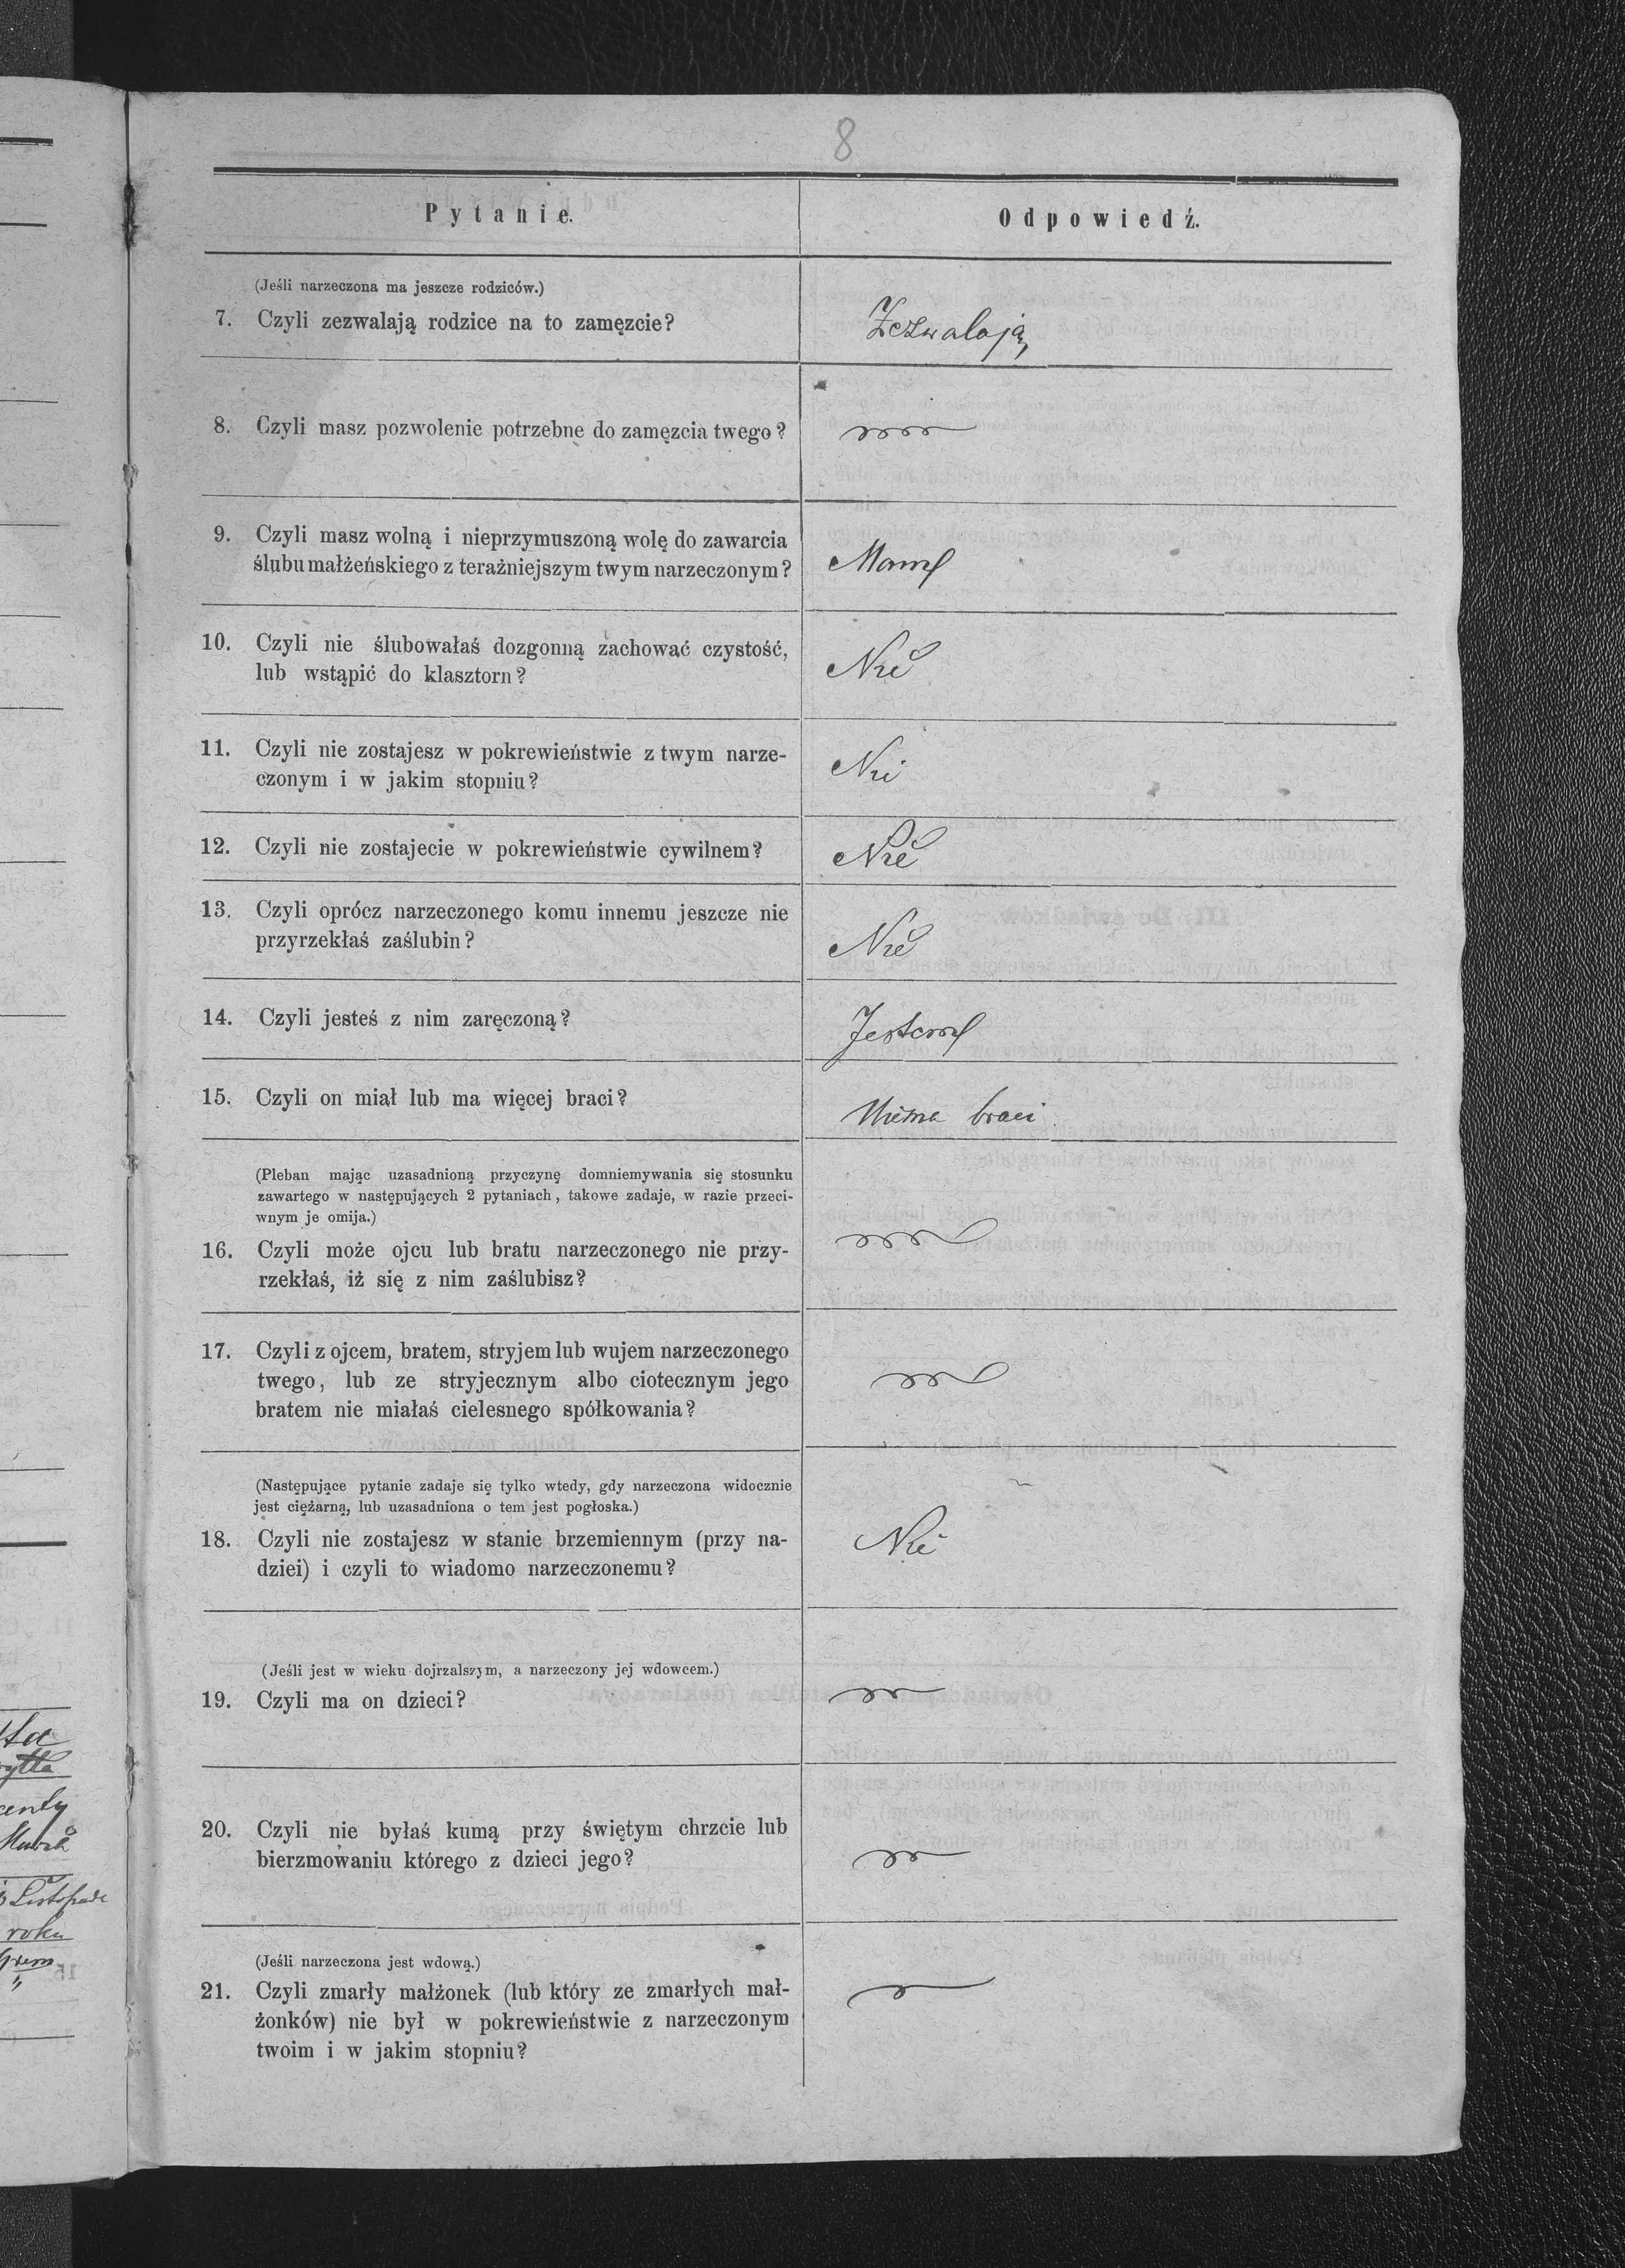 8
Pytanie.
Odpowiedź.
(Jeśli narzeczona ma jeszcze rodziców.)
7. Czyli zezwalają rodzice na to zamęzcie?
Zezwalają
8. Czyli masz pozwolenie potrzebne do zamęzcia twego?
9. Czyli masz wolną i nieprzymuszoną wolę do zawarcia
ślubu małżeńskiego z teraźniejszym twym narzeczonym?
Mam
10. Czyli nie ślubowałaś dozgonną zachować czystość,
lub wstąpić do klasztorn?
Nie
11. Czyli nie zostajesz w pokrewieństwie z twym narze-
czonym i w jakim stopniu?
Nie
12. Czyli nie zostajecie w pokrewieństwie cywilnem?
Nie
13. Czyli oprócz narzeczonego komu innemu jeszcze nie
przyrzekłaś zaślubin?
Nie
14. Czyli jesteś z nim zaręczoną?
Jestem
15. Czyli on miał lub ma więcej braci?
Niema braci
(Pleban mając uzasadnioną przyczynę domniemywania się stosunku
zawartego w następujących 2 pytaniach, takowe zadaje, w razie przeci-
wnym je omija.)
16. Czyli może ojcu lub bratu narzeczonego nie przy-
rzekłaś, iż się z nim zaślubisz?
17. Czyli z ojcem, bratem, stryjem lub wujem narzeczonego
twego, lub ze stryjecznym albo ciotecznym jego
bratem nie miałaś cielesnego spółkowania?
(Następujące pytanie zadaje się tylko wtedy, gdy narzeczona widocznie
jest ciężarną, lub uzasadniona o tem jest pogłoska.)
18. Czyli nie zostajesz w stanie brzemiennym (przy na-
dziei) i czyli to wiadomo narzeczonemu?
Nie
(Jeśli jest w wieku dojrzalszym, a narzeczony jej wdowcem.)
19. Czyli ma on dzieci?
20. Czyli nie byłaś kumą przy świętym chrzcie lub
bierzmowaniu którego z dzieci jego?
(Jeśli narzeczona jest wdową.)
21. Czyli zmarły małżonek (lub który ze zmarłych mał-
żonków) nie był w pokrewieństwie z narzeczonym
twoim i w jakim stopniu?
roku